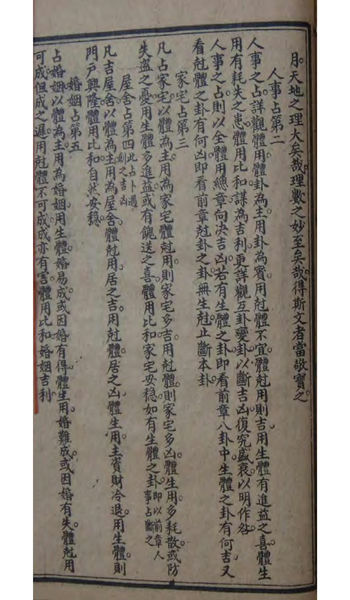 月。天地之理大矣哉。理數之妙至矣哉。得斯文者當敬寶之
人事占第二
人事之占詳觀體用體卦為主用卦為賓用尅體不宜體尅用則吉用生體有進益之喜體生
用有耗失之患體用比和謀為吉利更詳觀互卦變卦以斷吉凶復究盛衰以明休咎
人事之占則以全體用總章向決吉凶若有生體之卦即看前章八卦中生體之卦有何吉又
看尅體之卦有何凶即看前章尅卦之卦無生尅止斷本卦
家宅占第三
凡占家宅以體為主用為家宅體尅用則家宅多吉用尅體則家宅多凶體生用多耗散或防
失盜之憂用生體多進益或有饋送之喜體用比和家宅安穩如有生體之卦即以前章人事占斷之
屋舍占第四此占卜之吉凶
凡吉屋舍以體為主用為屋舍體尅用居之吉用尅體居之凶體生用主資財冷退用生體則
門戶興隆體用比和自然安穩
婚姻占第五
占婚姻以體為主用為婚姻用生體婚易成或因婚有得體生用婚難成或因婚有失體尅用
可成但成之遲用尅體不可成成亦有害體用比和婚姻吉利